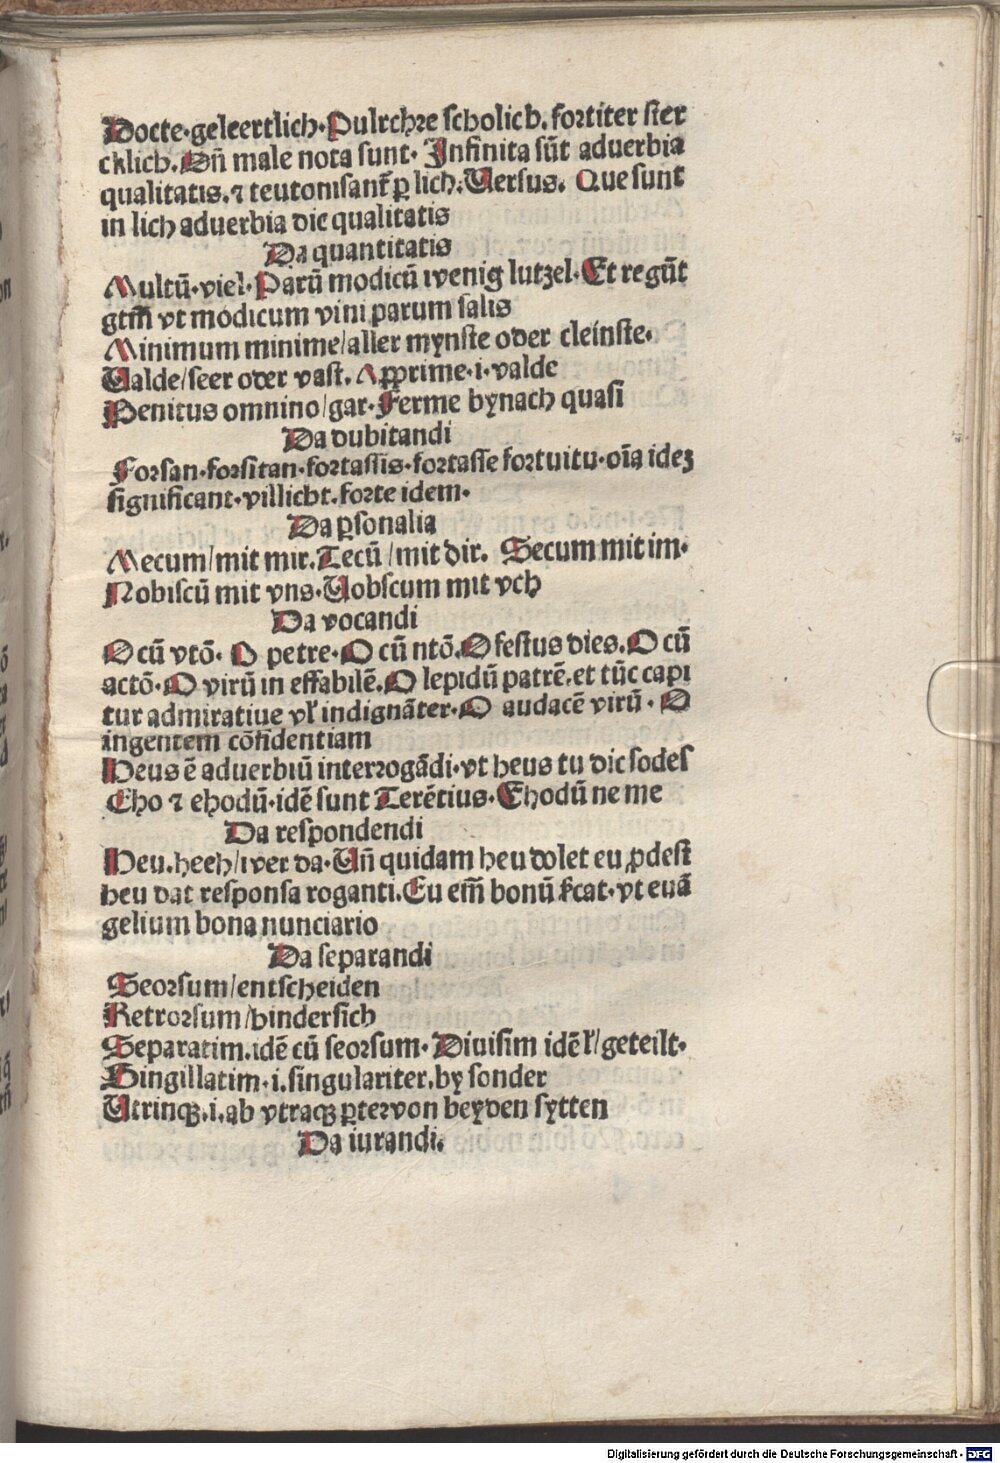 Docte·geleertlich·Pulrchre scholich. fortiter ster
cklich. Dn̄ male nota sunt· Infinita sūt aduerbia
qualitatis. ⁊ teutonisant̄ ꝑ lich. Uersus. Que sunt
in lich aduerbia dic qualitatis
Da quantitatis
Multū·viel·Parū modicū wenig lutzel·Et regūt
gtm̄ vt modicum vini parum salis
Minimum minime/aller mynste oder cleinste·
Ualde/seer oder vast. Apprime·i·valde
Penitus omnino/gar·Ferme bynach quasi
Da dubitandi
Forsan·forsitan·fortassis·fortasse fortuitu·oīa idez
significant·villicht.forte idem·
Da ꝑsonalia
Mecum/mit mir.Tecū/mit dir. Secum mit im·
Nobiscū mit vns·Uobscum mit vch
Da vocandi
O cū vtō· O petre·O cū ntō.O festus dies.O cū
actō·O virū in effabilē.O lepidū patrē.et tūc capi
tur admiratiue vl' indignāter·O audacē virū·O
ingentem cōfidentiam
Heus ē aduerbiū interrogādi·vt heus tu dic sodes
Eho ⁊ ehodū·idē sunt Terētius·Ehodū ne me
Da respondendi
Heu.heeh/wer da·Un̄ quidam heu dolet eu ꝓdest
heu dat responsa roganti.Eu em̄ bonū s̄cat·vt euā
gelium bona nunciario
Da separandi
Seorsum/entscheiden
Retrorsum/hindersich
Separatim.idē cū seorsum·Diuisim idē l'/geteilt·
Singillatim·i.singulariter.by sonder
Utrinqꝫ.i.ab vtraqꝫ ꝑte/von beyden sytten
Da iurandi.
Digitalisierung gefördert durch die Deutsche Forschungsgemeinschaft - DFG